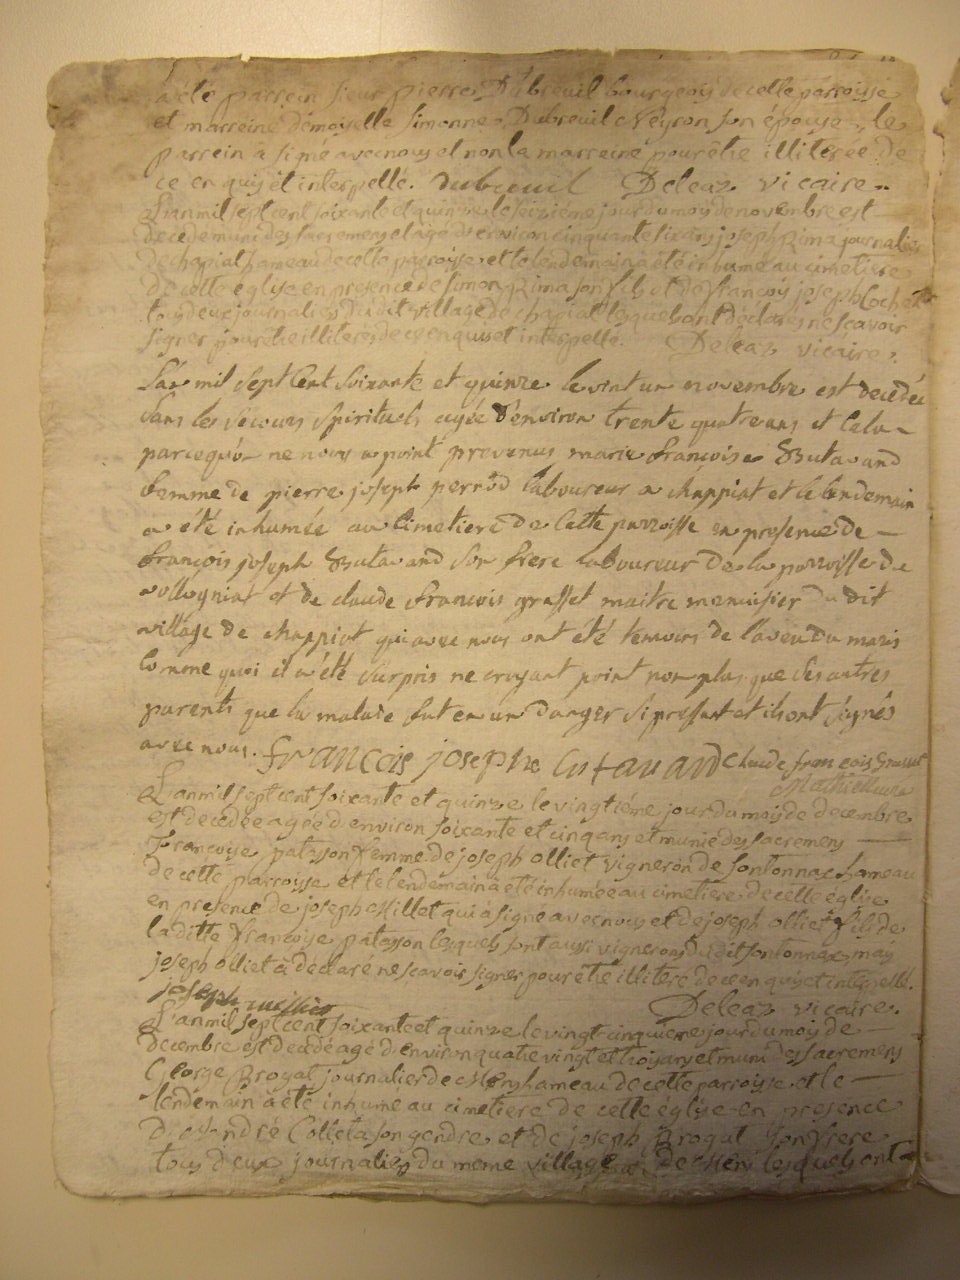 a été parrein sieur pierre Dubreuil bourgeois de cette parroisse
et marreine démoyselle simonne Dubreuil Neyron son épouse, le
parrein à signé avec nous et non la marreine pour être illiterée de
ce enquis et interpellé. dubreuil Deleaz vicaire.
L'an mil sept cent soixante et quinze le seiziéme jour du moy de novembre est
decedé muni des sacremens et agé d'environ cinquante six ans joseph Rima journalier
de chapiat hameau de cette parroisse et le lendemain à été inhumé au cimetiere
de cette eglise en presence de simon Rima son fils et de françois joseph Cochet
tous deux journaliers du dit village de chapiat lesquels ont déclarés ne scavoir
signer pour être illiteres de ce enquis et interpellé. Deleaz vicaire.
L'an mil sept Cent soixante et quinze le vint un novembre est decedée
sans les secours spirituels agée d'environ trente quatre ans et Cela
parcequ'on ne nous a point prevenus marie françoise Butavand
femme de pierre joseph pernod laboureur a chappiat et le lendemain
a été inhumée au Cimetiere de Cette parroisse en presence de
françois joseph Butavand son frere laboureur de la parroisse de
vollogniat et de claude françois grasset maitre menuisier du dit
village de chappiat qui avec nous ont été temoins de l'aveu du maris
Comme quoi il a été surpris ne croyant point non plus que ses autres
parents que la malade fut en un danger si pressant et ils ont signés
avec nous. françois josephe butavand Claude françois Grasset
L'an mil sept cent soixante et quinze le vingtiéme jour du moy de decembre
est decedée agée d'environ soixante et cinq ans et munie des sacremens
Françoise patasson femme de joseph olliet vigneron de sontonnax hameau
de cette parroisse et le lendemain à été inhumée au cimetiere de cette église
en presence de joseph Millet qui à signé avec nous et de joseph olliet fils de
la ditte françoise patasson lesquels sont aussi vignerons du dit sontonnax mais
joseph olliet à déclaré ne scavoir signer pour être illitere de ce enquis et interpellé.
joseph millet Deleaz vicaire.
L'an mil sept cent soixante et quinze le vingt cinquieme jour du moy de
Decembre est decedé agé d'environ quatre vingt et trois ans et muni des sacremens
George Brogat journalier de hameau de cette parroisse et le
lendemain à été inhumé au cimetiere de cette église en presence
D'André Colleta son gendre et de joseph Brogat son frere
tous deux journaliers du meme village de lesquels ont